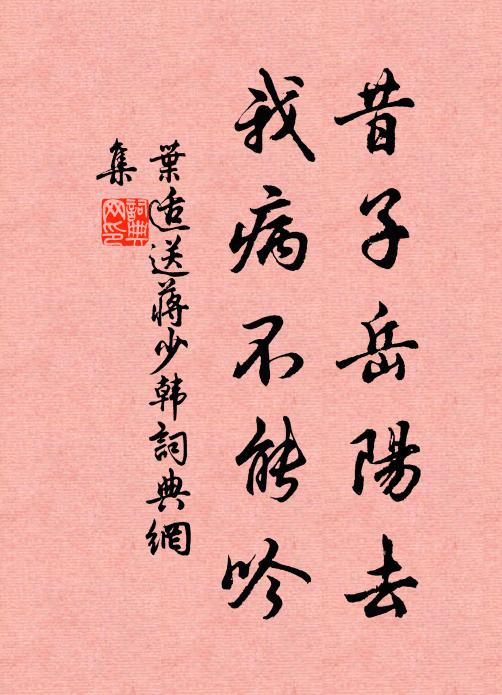 昔子岳陽去
我病不能吟
葉适送蔣少韩詞典網
集
詞典
网印